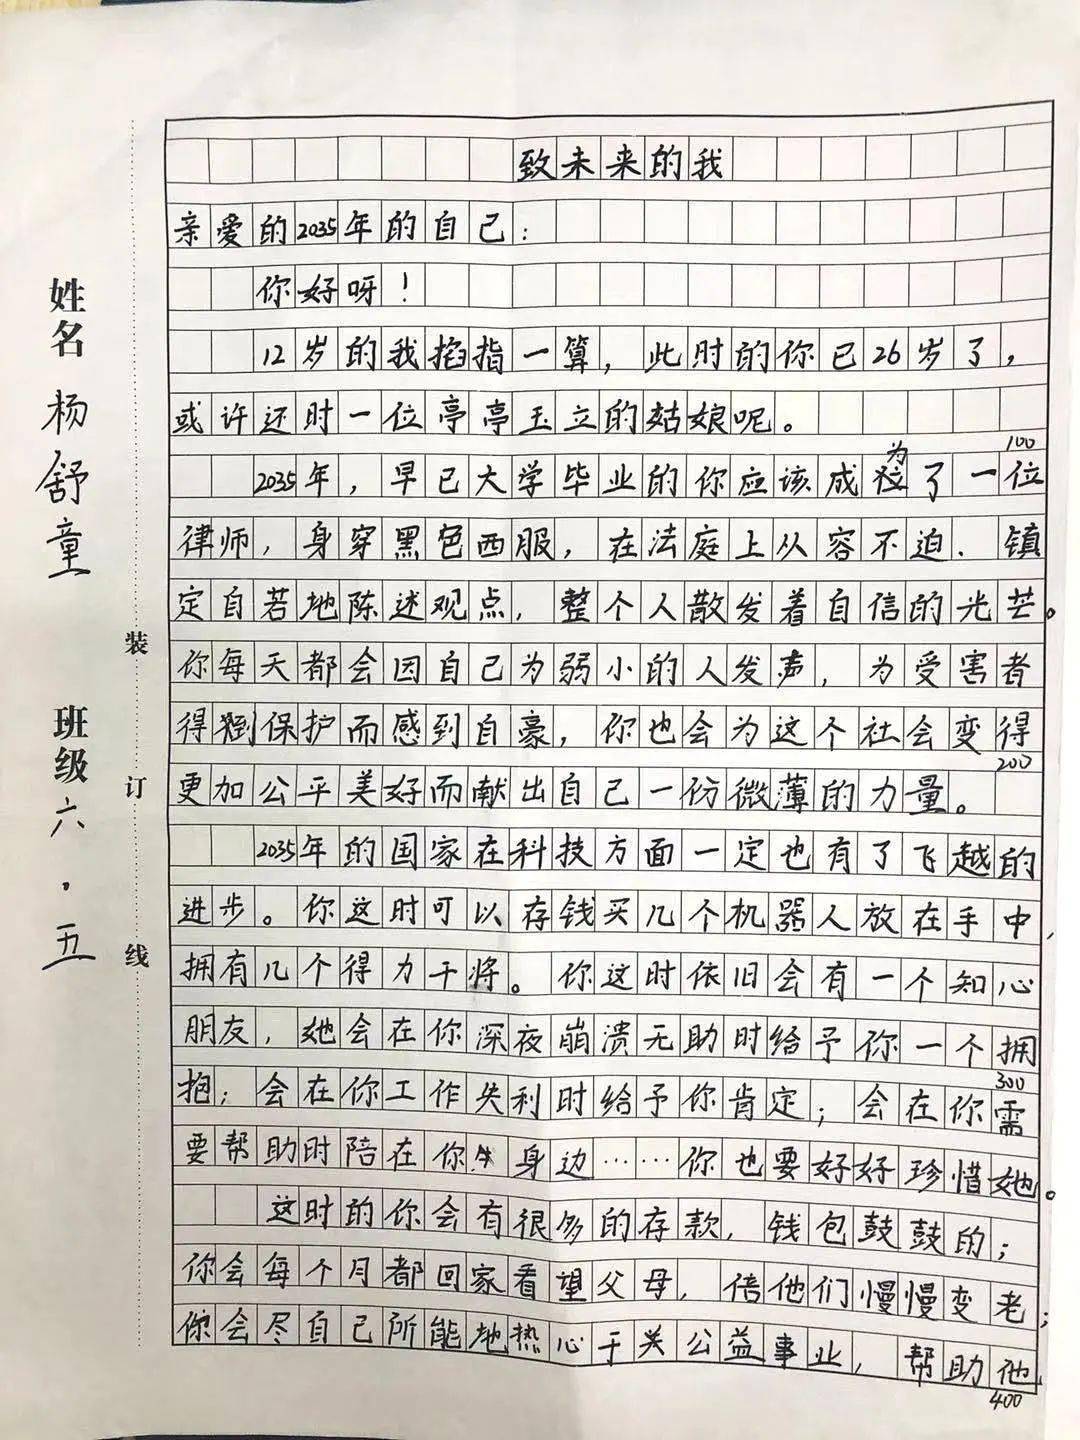 致未来的我
亲爱的2035年的自己：
你好呀！
12岁的我掐指一算，此时的你已26岁了，
或许还时一位亭亭玉立的姑娘呢。
100
2035年，早已大学毕业的你应该成为了一位
律师，身穿黑色西服，在法庭上从容不迫、镇
定自若地陈述观点，整个人散发着自信的光芒。
你每天都会因自己为弱小的人发声，为受害者
得到保护而感到自豪，你也会为这个社会变得
200
更加公平美好而献出自己一份微薄的力量。
2035年的国家在科技方面一定也有了飞越的
进步。你这时可以存钱买几个机器人放在手中，
拥有几个得力干将。你这时依旧会有一个知心
朋友，她会在你深夜崩溃无助时给予你一个拥
300
抱；会在你工作失利时给予你肯定；会在你需
要帮助时陪在你身边……你也要好好珍惜她。
这时的你会有很多的存款，钱包鼓鼓的；
你会每个月都回家看望父母，倍他们慢慢变老；
你会尽自己所能地热心于关公益事业，帮助他
400
姓名 杨舒童
班级 六.五
装
订
线